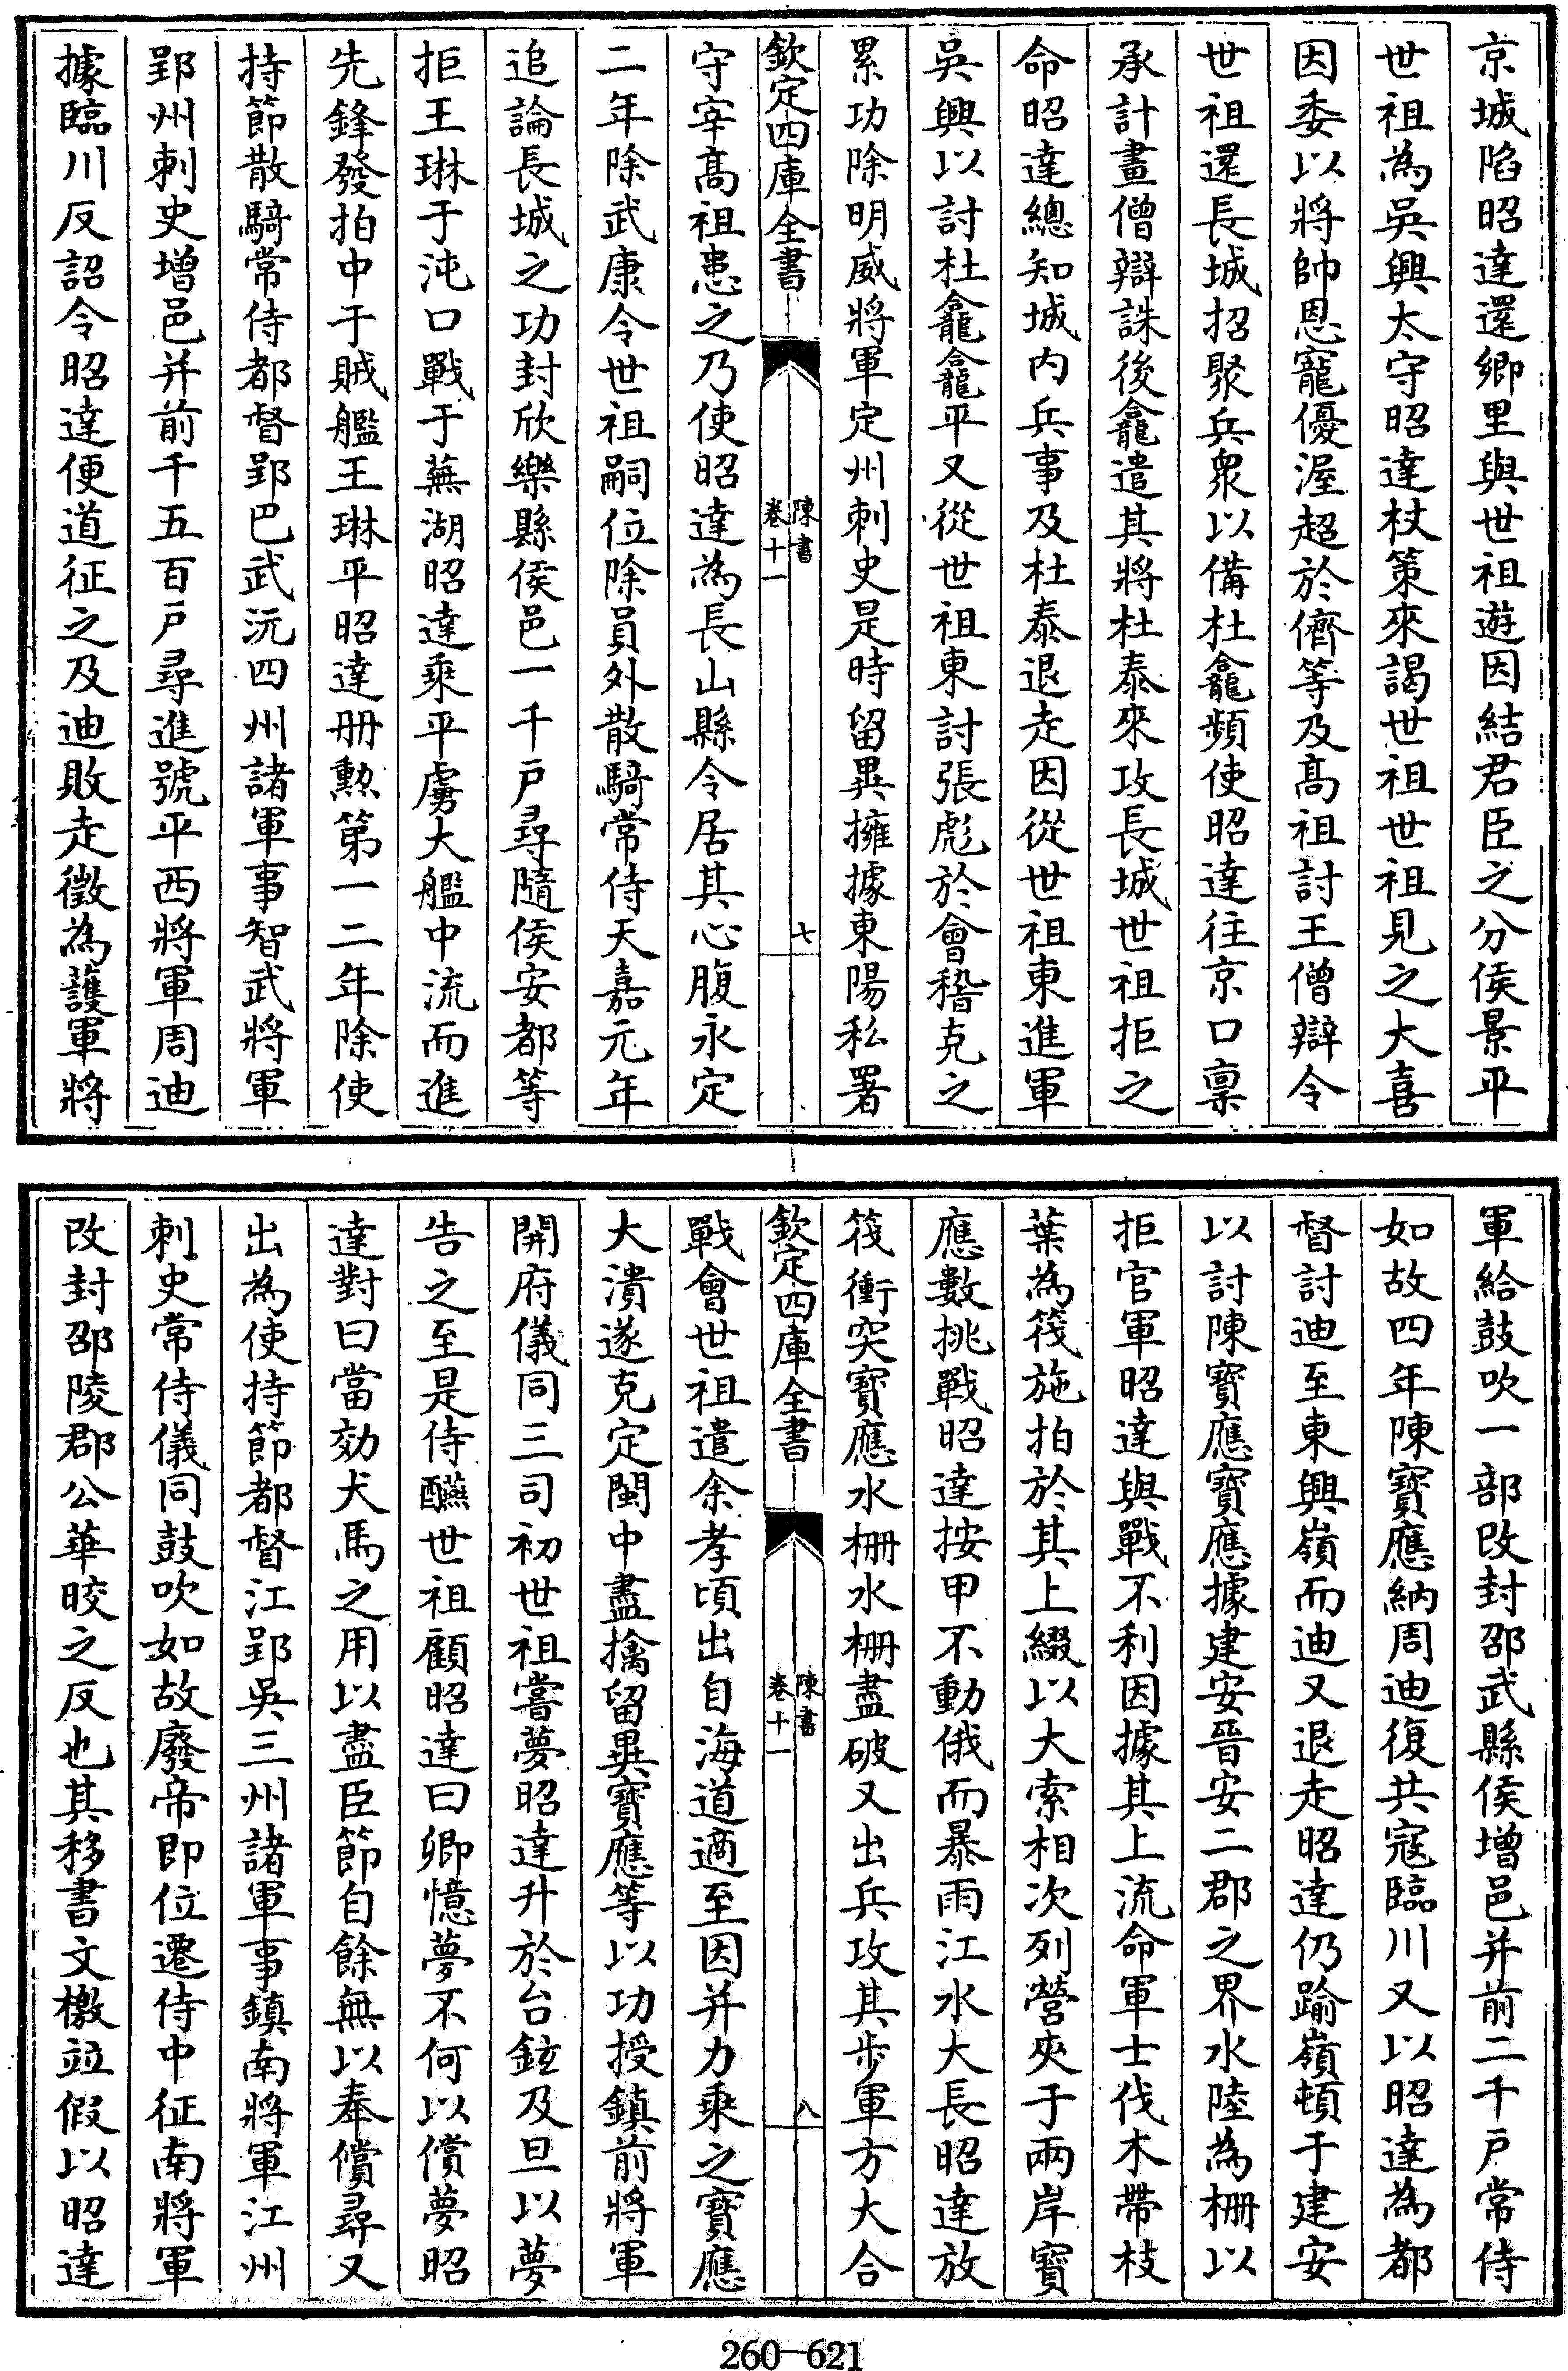 京城陷昭達還鄉里與世祖遊因結君臣之分侯景平
世祖為吳興太守昭達杖策來謁世祖世祖見之大喜
因委以將帥恩寵優渥超於儕等及髙祖討王僧辯令
世祖還長城招聚兵衆以備杜龕頻使昭達往京口禀
承計畫僧辯誅後龕遣其將杜泰來攻長城世祖拒之
命昭達總知城内兵事及杜泰退走因從世祖東進軍
吳興以討杜龕龕平又從世祖東討張彪於會稽克之
累功除明威將軍定州刺史是時留異擁據東陽私署
欽定四庫全書
陳書
卷十一
七
守宰髙祖患之乃使昭達為長山縣令居其心腹永定
二年除武康令世祖嗣位除員外散騎常侍天嘉元年
追論長城之功封欣樂縣侯邑一千戸尋隨侯安都等
拒王琳于沌口戰于蕪湖昭達乘平虜大艦中流而進
先鋒發拍中于賊艦王琳平昭達册勲第一二年除使
持節散騎常侍都督郢巴武沅四州諸軍事智武將軍
郢州刺史增邑并前千五百戸尋進號平西將軍周迪
據臨川反詔令昭達便道征之及迪敗走徵為護軍將
軍給鼓吹一部改封邵武縣侯增邑并前二千戸常侍
如故四年陳寶應納周迪復共寇臨川又以昭達為都
督討迪至東興嶺而迪又退走昭達仍踰嶺頓于建安
以討陳寶應寶應據建安晉安二郡之界水陸為柵以
拒官軍昭達與戰不利因據其上流命軍士伐木帶枝
葉為筏施拍於其上綴以大索相次列營夾于兩岸寶
應數挑戰昭達按甲不動俄而暴雨江水大長昭達放
筏衝突寶應水柵水柵盡破又出兵攻其步軍方大合
欽定四庫全書
陳書
卷十一
八
戰會世祖遣余孝頃出自海道適至因并力乘之寶應
大潰遂克定閩中盡擒留異寶應等以功授鎮前將軍
開府儀同三司初世祖嘗夢昭達升於台鉉及旦以夢
告之至是侍醼世祖顧昭達曰卿憶夢不何以償夢昭
達對曰當効犬馬之用以盡臣節自餘無以奉償尋又
出為使持節都督江郢吳三州諸軍事鎮南將軍江州
刺史常侍儀同鼓吹如故廢帝即位遷侍中征南將軍
改封邵陵郡公華皎之反也其移書文檄竝假以昭達
260-621